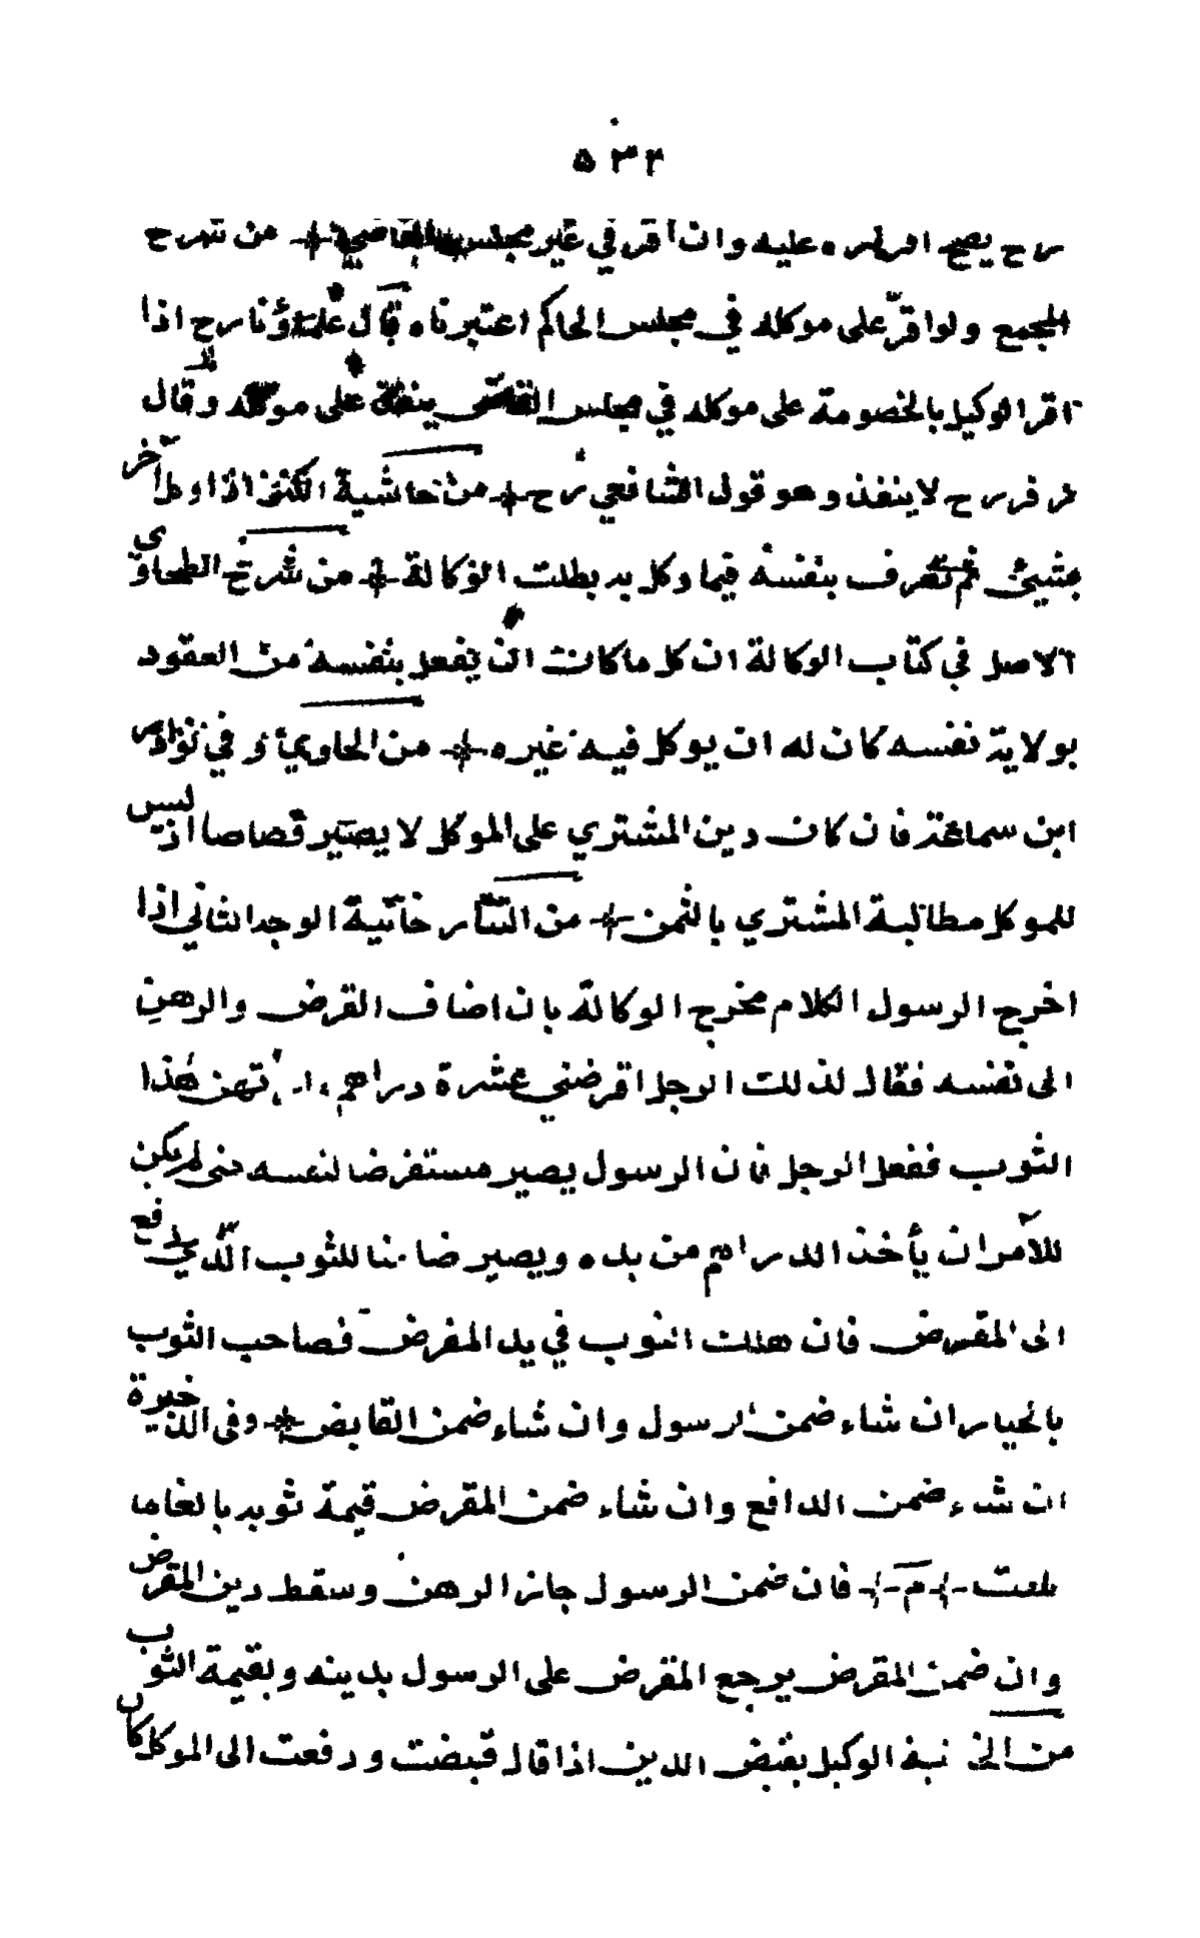 ٥٣٢
رح يصح اقراره عليه وان أقر في غير مجلس القاضي من شرح
المجمع ولو اقرّ على موكله في مجلس الحاكم اعتبرناه قال علماؤنا رح اذا
اقر الوكيل بالخصومة على موكله في مجلس القاضى ينفذ على موكله وقال
زفر رح لا ينفذ وهو قول الشافعي رح من حاشية الكنز اذا وكل آخر
بشيئ ثم تصرف بنفسه فيما وكل به بطلت الوكالة من شرح الطحاوي
الاصل في كتاب الوكالة ان كل ما كانت ان يفعل بنفسه من العقود
بولاية نفسه كان له ان يوكل فيه غيره من الحاوي وفي نوادر
ابن سماعة فان كان دين المشتري على الموكل لا يصير قصاصا اذ ليس
للموكل مطالبة المشتري بالثمن من التتارخانية الوجه الثاني اذا
اخرج الرسول الكلام مخرج الوكالة بان اضاف القرض والرهن
الى نفسه فقال لذلك الرجل اقرضني عشرة دراهم وارتهن هذا
الثوب ففعل الرجل فان الرسول يصير مستقرضا لنفسه حتى لم يكن
للآمر ان يأخذ الدراهم من يده ويصير ضامنا للثوب الّذي دفع
الى المقرض فان هلك الثوب في يد المقرض فصاحب الثوب
بالخيار ان شاء ضمن الرسول وان شاء ضمن القابض وفى الذخيرة
ان شاء ضمن الدافع وان شاء ضمن المقرض قيمة ثوبه بالغا ما
بلغت م فان ضمن الرسول جاز الرهن وسقط دين المقرض
وان ضمن المقرض يرجع المقرض على الرسول بدينه وبقيمة الثوب
من الخانية الوكيل بقبض الدين اذا قال قبضت ودفعت الى الموكل كان